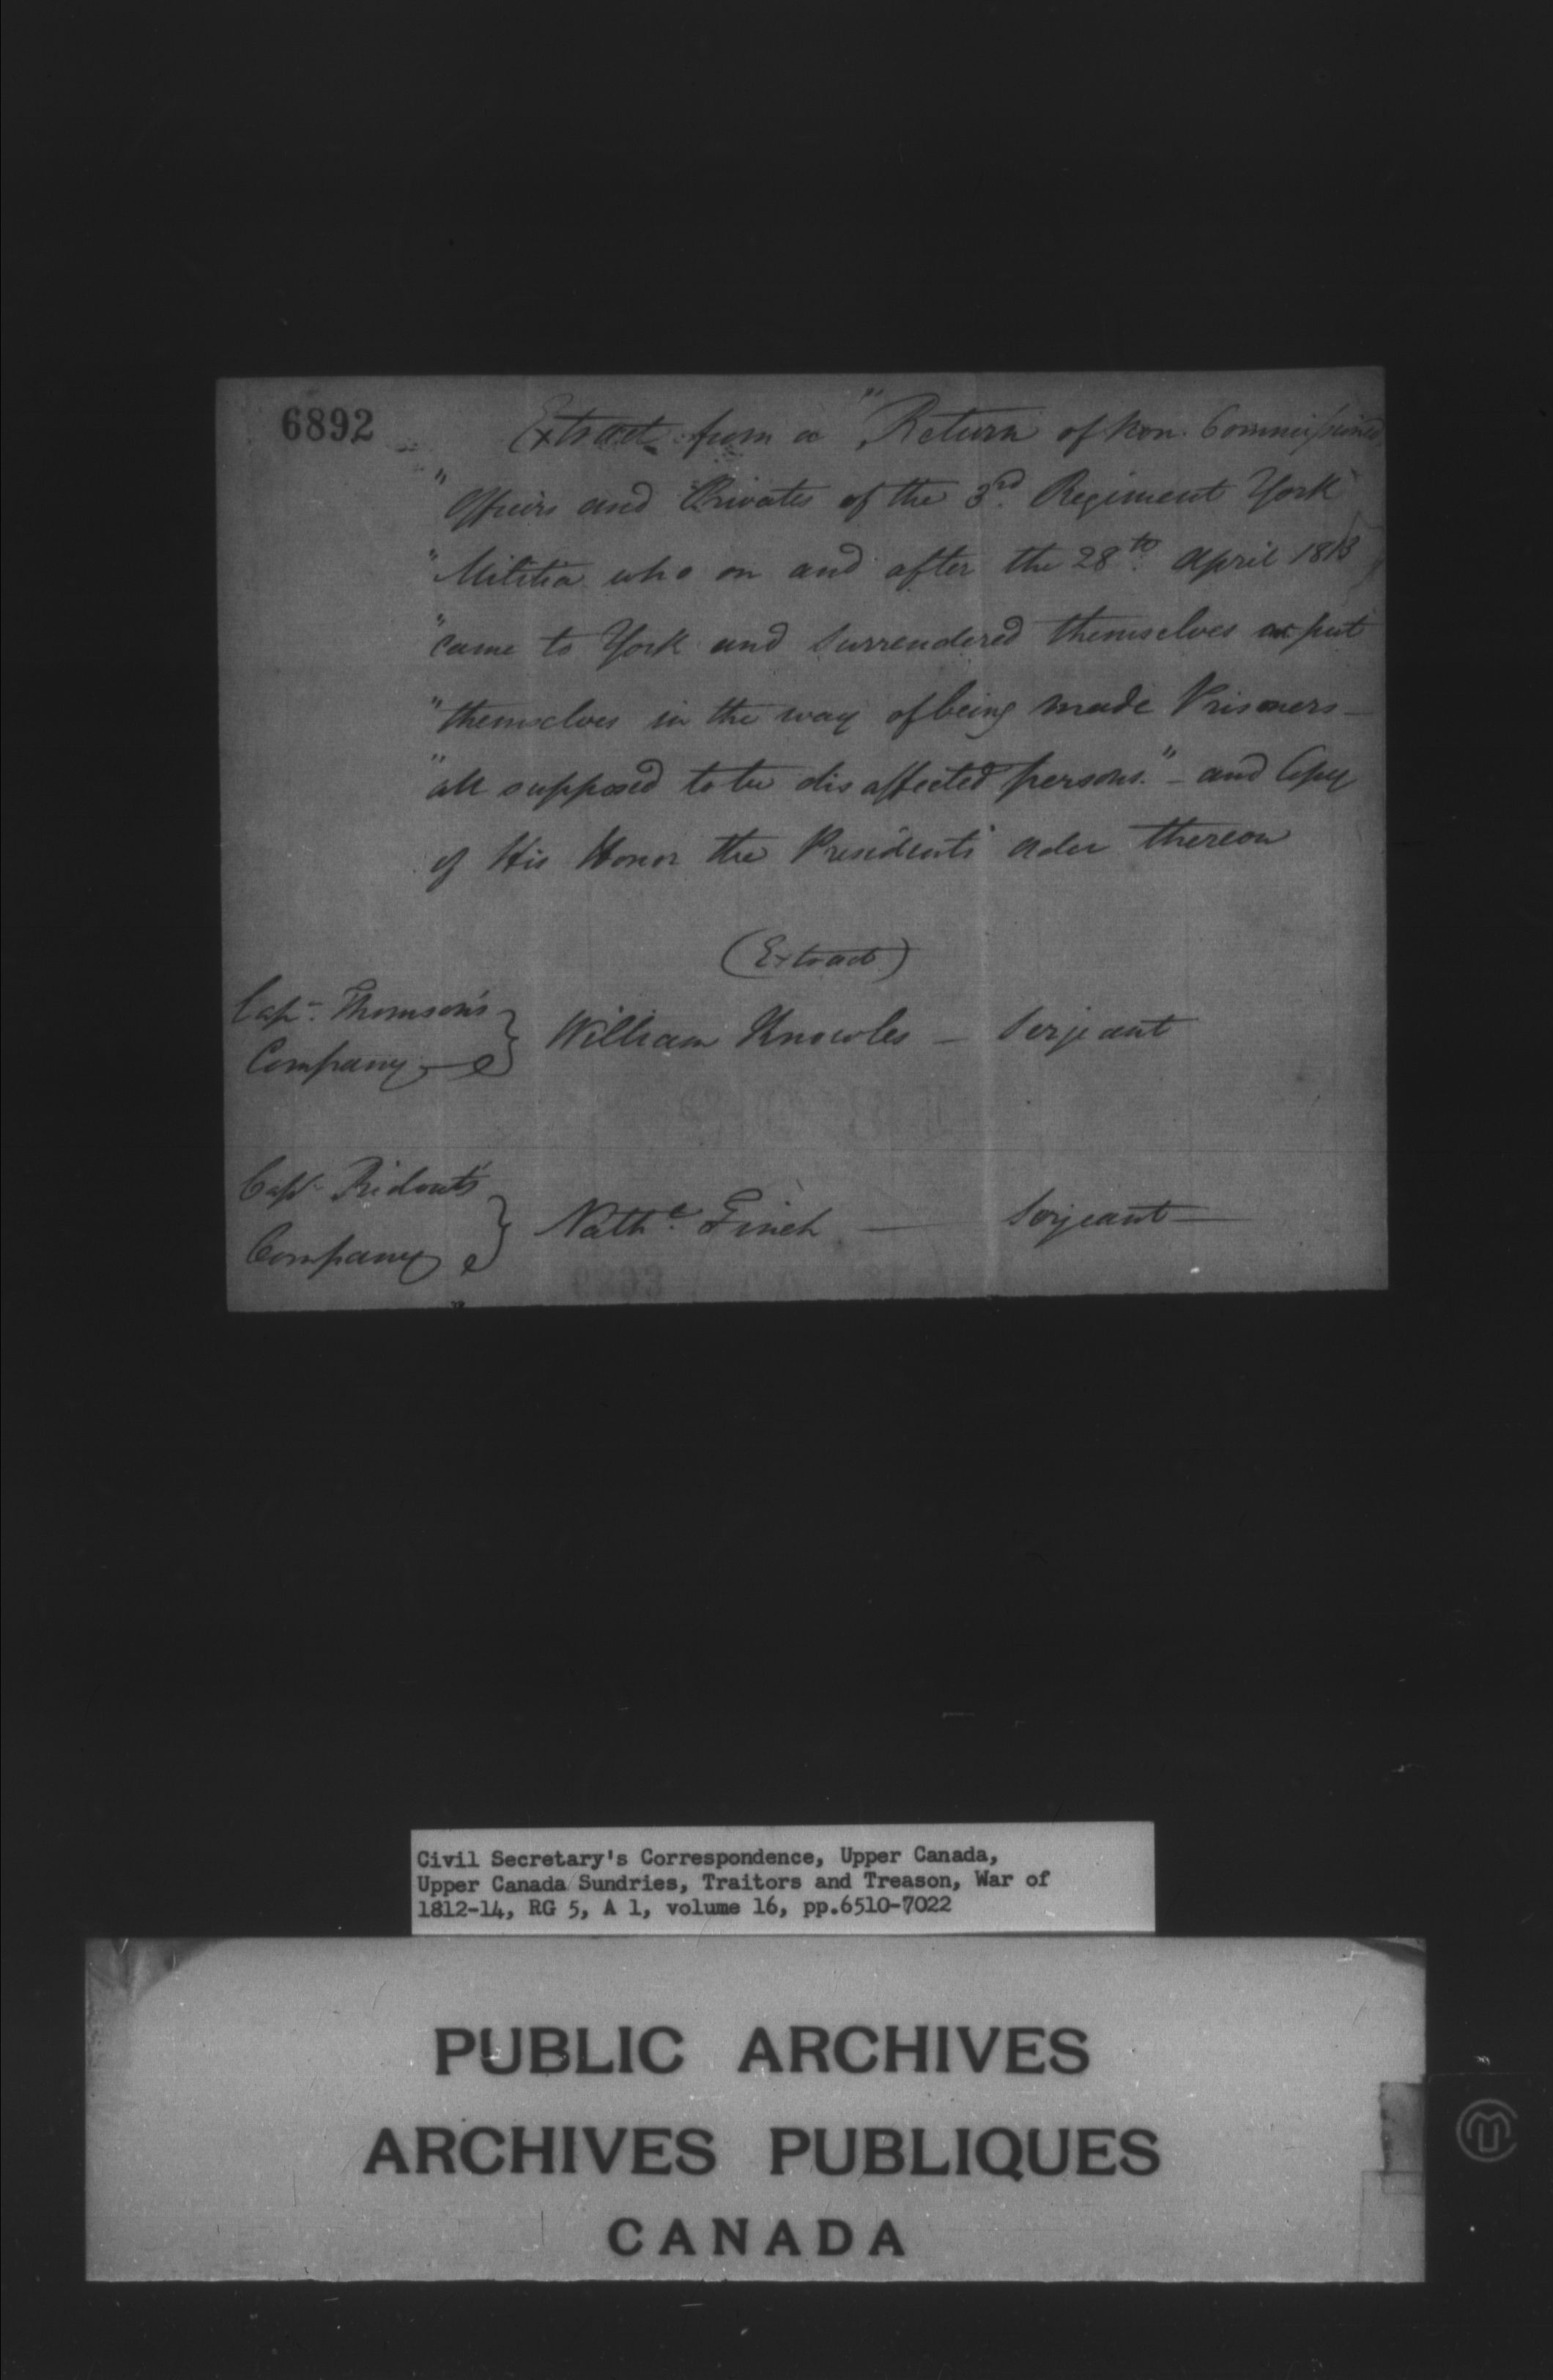 6892
Extract from a "Return of Non Commissioned
"Officers and Privates of the 3rd Regiment York
"Militia who on and after the 28th April 1813
"came to York and surrendered themselves or put
"themselves in the way of being made Prisoners—
"all supposed to be disaffected persons."— and Copy
of His Honor the Presidents order thereon
(Extract)
Capt. Thomson's
Company } William Knowles — Serjeant
Capt. Ridout's
Company } Nathl. Finch — Serjeant —
Civil Secretary's Correspondence, Upper Canada,
Upper Canada Sundries, Traitors and Treason, War of
1812-14, RG 5, A 1, volume 16, pp.6510-7022
PUBLIC ARCHIVES
ARCHIVES PUBLIQUES
CANADA